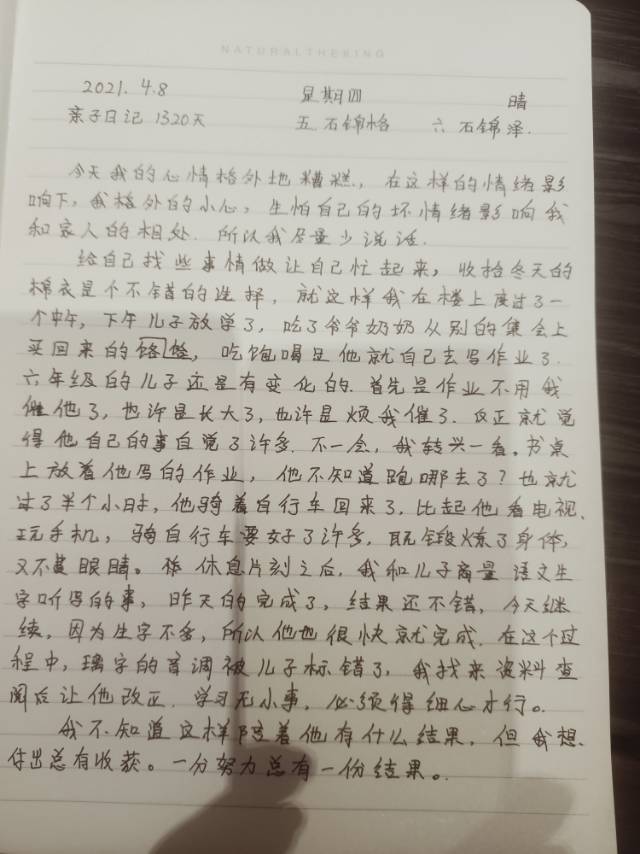 NATURALTHEKING
2021. 4.8 星期四 晴
亲子日记 1320天 五 石锦格 六 石锦泽.
今天我的心情格外地糟糕, 在这样的情绪影
响下, 我格外的小心, 生怕自己的坏情绪影响我
和家人的相处. 所以我尽量少说话.
给自己找些事情做让自己忙起来, 收拾冬天的
棉衣是个不错的选择, 就这样我在楼上度过了一
个中午, 下午儿子放学了, 吃了爷爷奶奶从别的集会上
买回来的饸, 吃饱喝足他就自己去写作业了.
六年级的儿子还是有变化的. 首先是作业不用我
催他了, 也许是长大了, 也许是烦我催了. 反正就觉
得他自己的事自觉了许多. 不一会, 我转兴一看. 书桌
上放着他写的作业, 他不知道跑哪去了? 也就
过了半个小时, 他骑着自行车回来了, 比起他看电视、
玩手机, 骑自行车要好了许多, 既锻炼了身体,
又不费眼睛。 休息片刻之后, 我和儿子商量语文生
字听写的事, 昨天的完成了, 结果还不错, 今天继
续, 因为生字不多, 所以他也很快就完成. 在这个过
程中, 璃字的音调被儿子标错了, 我找来资料查
阅后让他改正. 学习无小事, 必须得细心才行。
我不知道这样陪着他有什么结果, 但我想.
付出总有收获。一分努力总有一份结果。